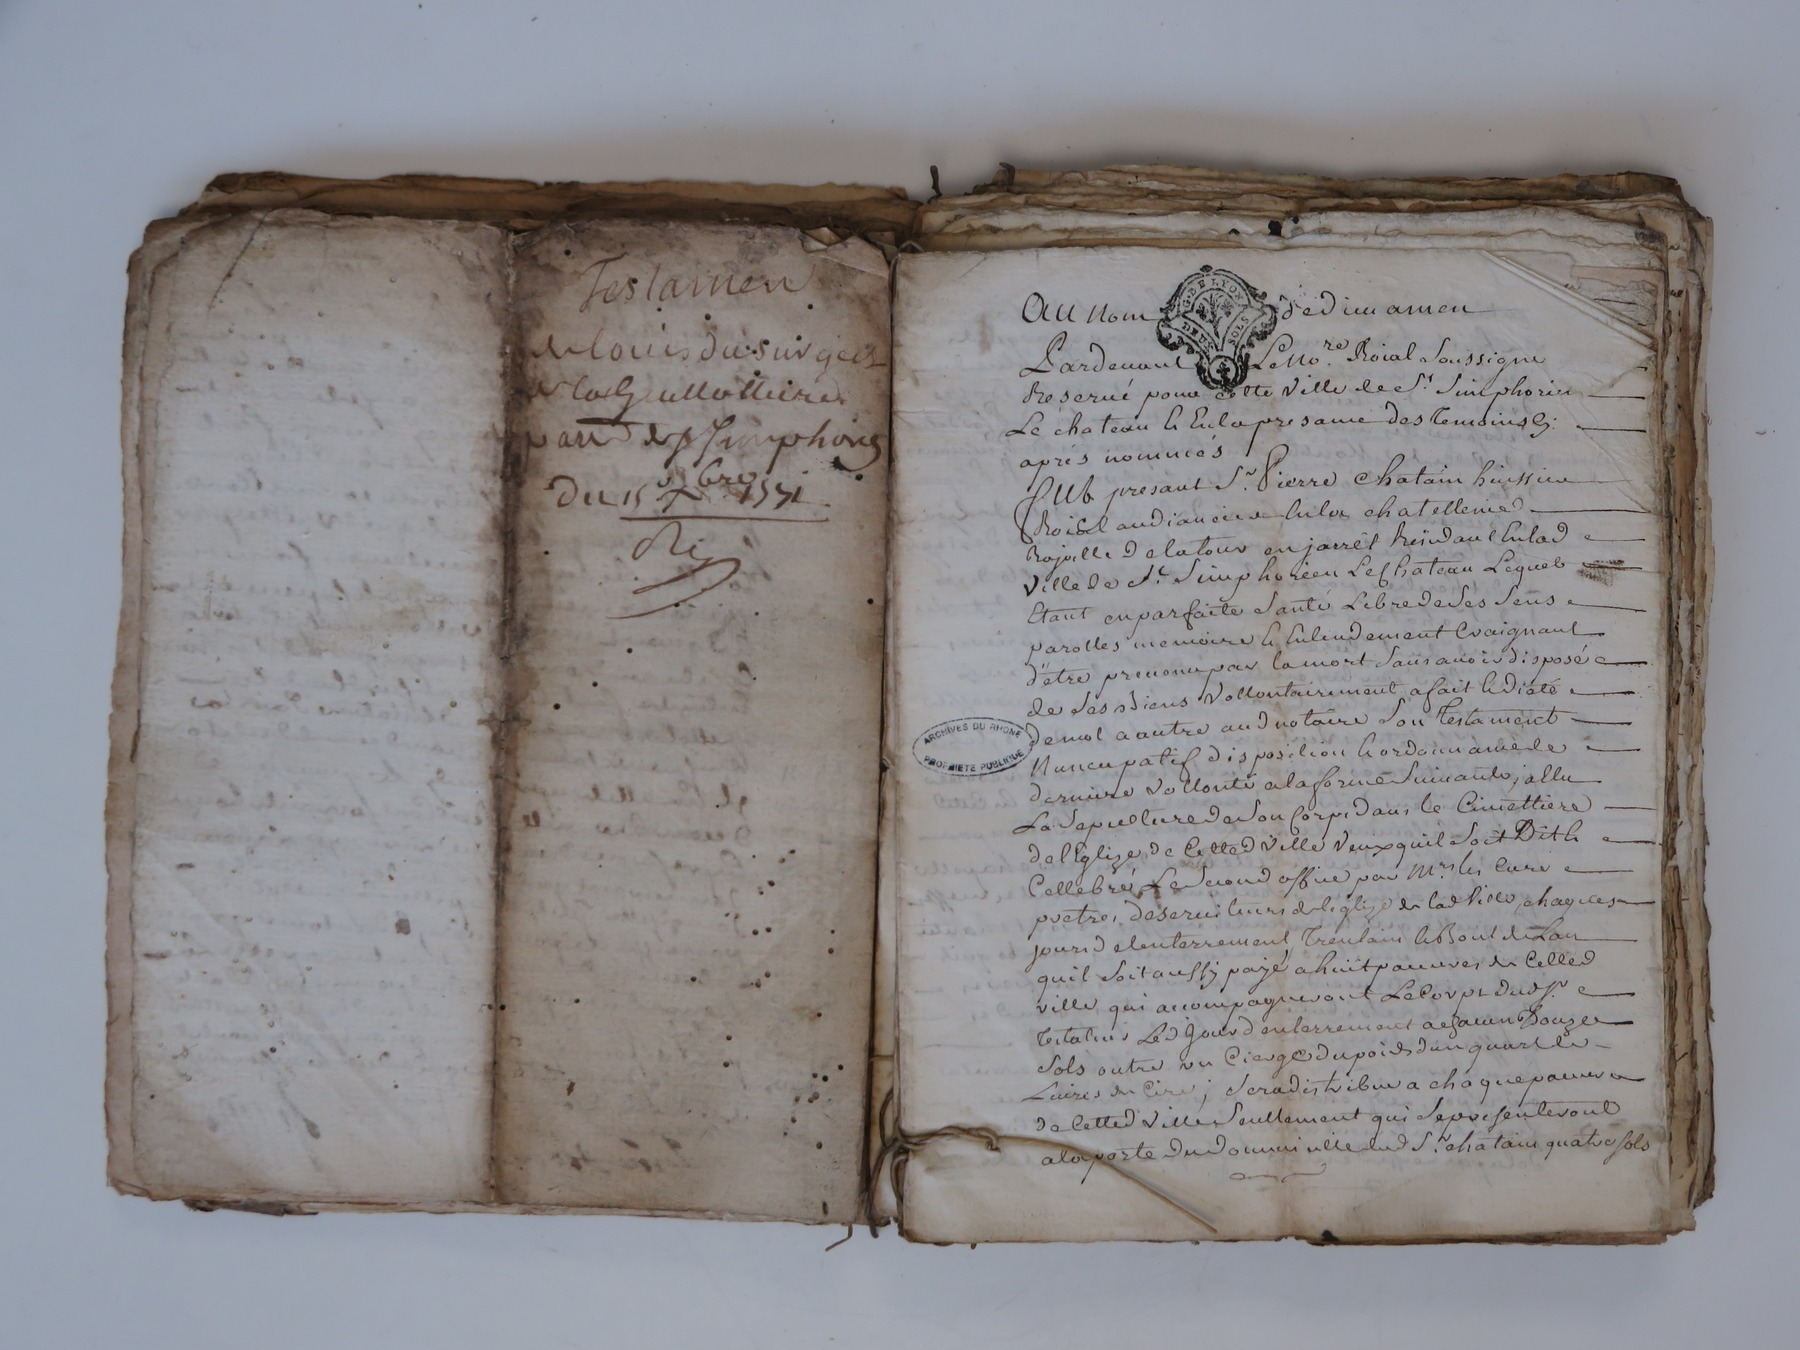 Testamen
de louis du surgelz
de la Guillottiere
parr. de St Simphorie
du 15 xbre 1571
Au nom de dieu amen
G. DE LYON
DEUX SOLS
Pardevant Le No.re Roial Soussigne
Reservé pour cette Ville de St Simphorien
Le chateau & En la presance des temoins Cy
aprés nommés
fut presant Sr. Pierre Chatain huissier
Roial audiancier en la chatellenie
Rojalle de la tour en jarrêt Residant En lad
Ville de St. Simphorien Le Chateau Lequel
Etant en parfaite Santé Libre de Ses Sens
parolles memoire & Entendement Craignant
d'être prevenu par la mort Sans avoir disposé
de Ses Biens Vollontairement a fait & dicté
de mot a autre aud notaire Son Testament
Nuncupatif disposition & ordonnance de
derniere Vollonté a la forme Suivante, jallu
La Sepulture de Son Corps dans le Cimettiere
de l'Eglize de Cetted Ville Veux quil Soit Dit &
Cellebré Le Second office par Mrs les Cure
pretres deserviteurs de léglize de lad Ville, chaques
jours d'elenterrement, trentain & Bout de Lan
quil Soit aussy payé a huit pauvres de Cetted
ville qui accompagneront Le Corps dud Sr.
testateur Led Jour d'enterrement a chacun Douze
Sols outre un Cierge du poids d'un quart de
Livres de Cire; Sera distribué a chaque pauvre
de Cetted Ville Seullement qui Se presenteront
a la porte du Domicille dud Sr. chatain quatre Sols
ARCHIVES DU RHONE
PROPRIETE PUBLIQUE